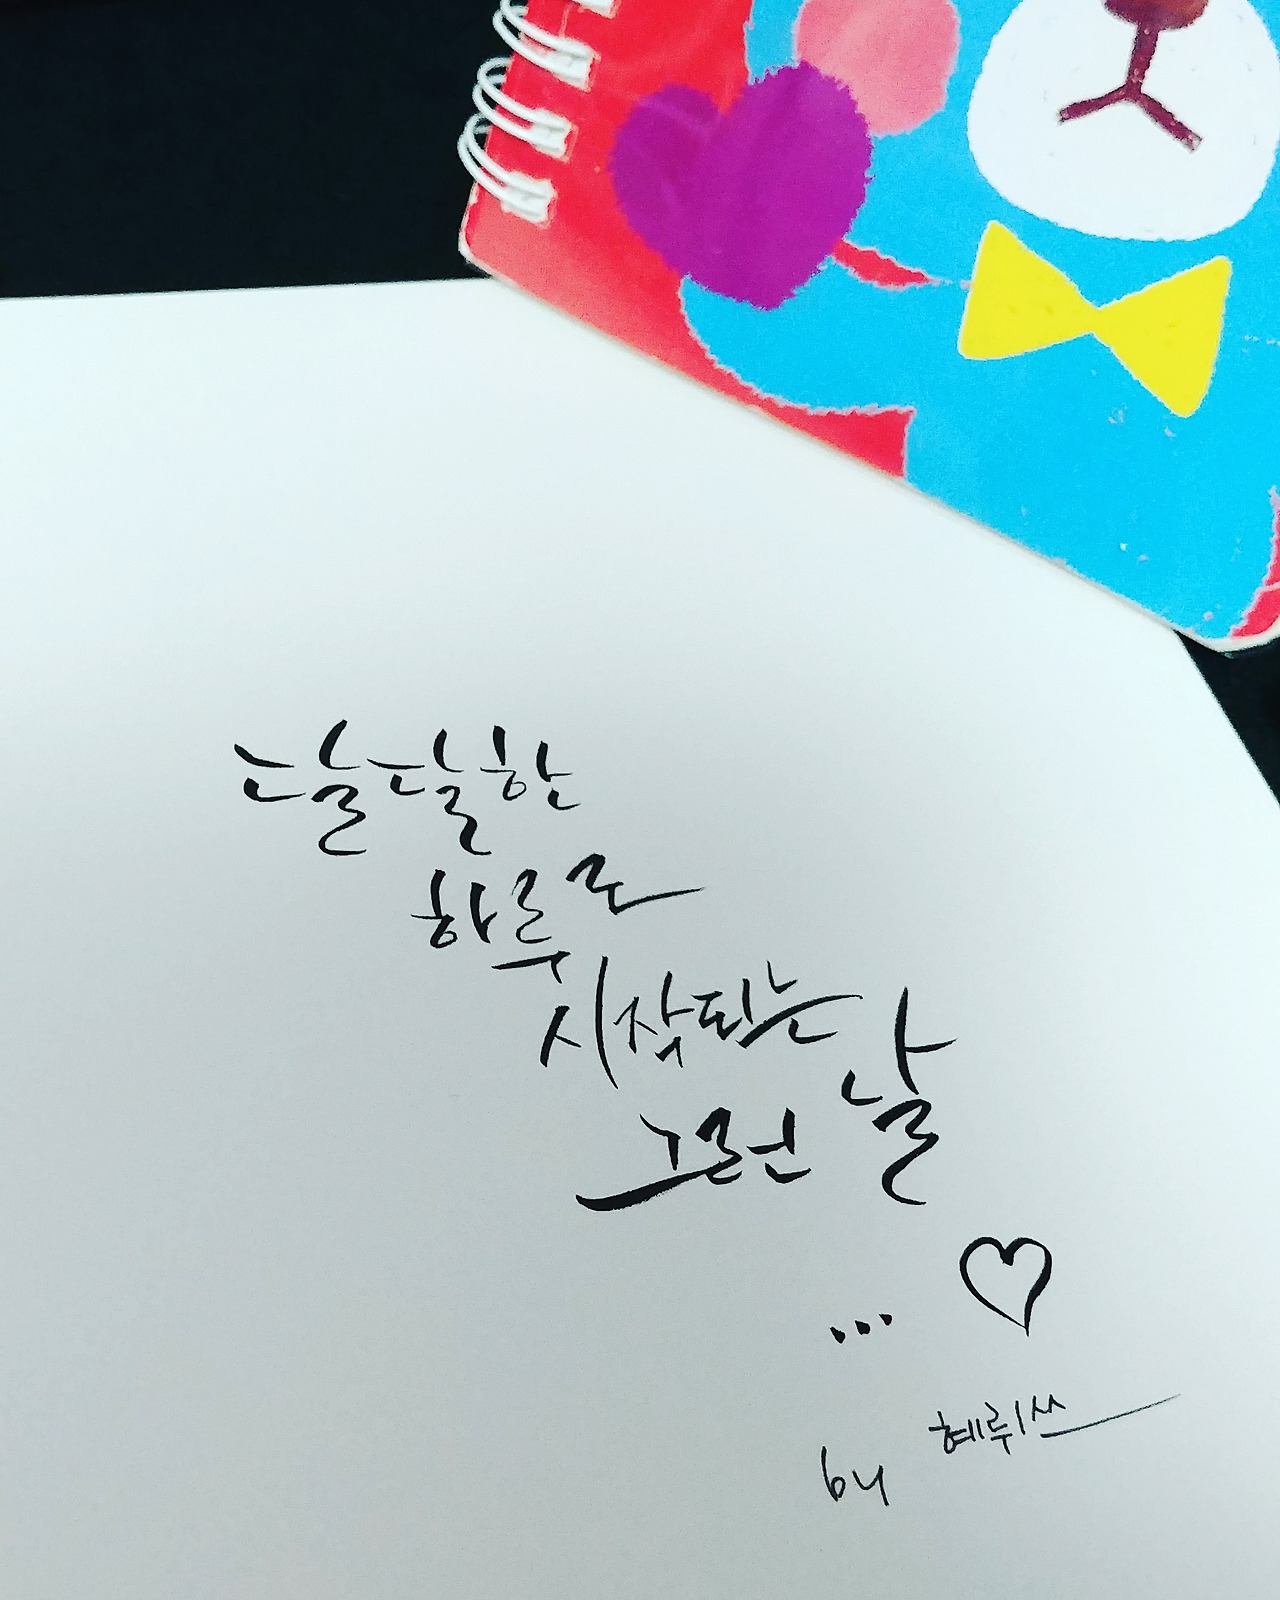 달달한
하루로
시작되는
그런 날
... ♡
by 혜뤼쓰